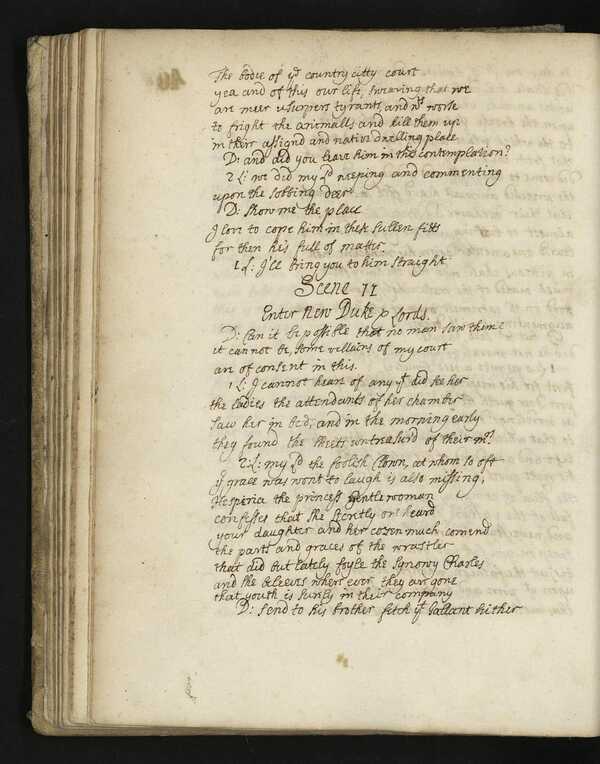 The bodie of yᵉ country citty court
yea and of this our life, swearing that we
are meer usurpers tyrants, and wᵗˢ worse
to fright the animalls and kill them up
in their assignd and native dwelling place
D: and did you leave him in this contemplation?
2 L: we did my Lᵈ weeping and commenting
upon the sobbing deer
D: Show me the place
I love to cope him in these sullen fitts
for then he's full of matter.
1 L: I'll bring you to him straight
Scene II
Enter New Duke p Lords.
D: Can it be possible that no man saw them?
it cannot be, some villains of my court
are of consent in this.
1 L: I cannot heare of any yᵗ did see her
the ladies the attendants of her chamber
saw her in bed, and in the morning early
they found the sheets untreasurd of their mʳˢ
2 L: my Lᵈ the foolish Clown, at whom so oft
yʳ grace was wont to laugh is also missing,
Hesperia the princess gentlewoman
confesses that she secretly or heard
your daughter and her cozen much comend
the parts and graces of the wrastler
that did but lately foyle the synowy Charles
and she beleeves where ever they are gone
that youth is surely in their company
D: Send to his brother fetch yᵗ Gallant hither